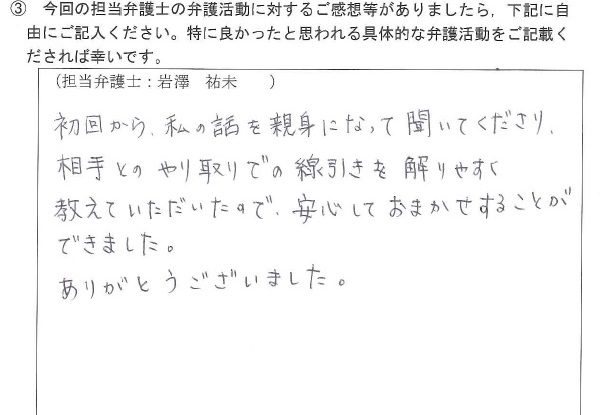 ③ 今回の担当弁護士の弁護活動に対するご感想等がありましたら，下記に自
由にご記入ください。特に良かったと思われる具体的な弁護活動をご記載く
だされば幸いです。
（担当弁護士：岩澤 祐未 ）
初回から、私の話を親身になって聞いてくださり、
相手とのやり取りでの線引きを解りやすく
教えていただいたので、安心しておまかせすることが
できました。
ありがとうございました。